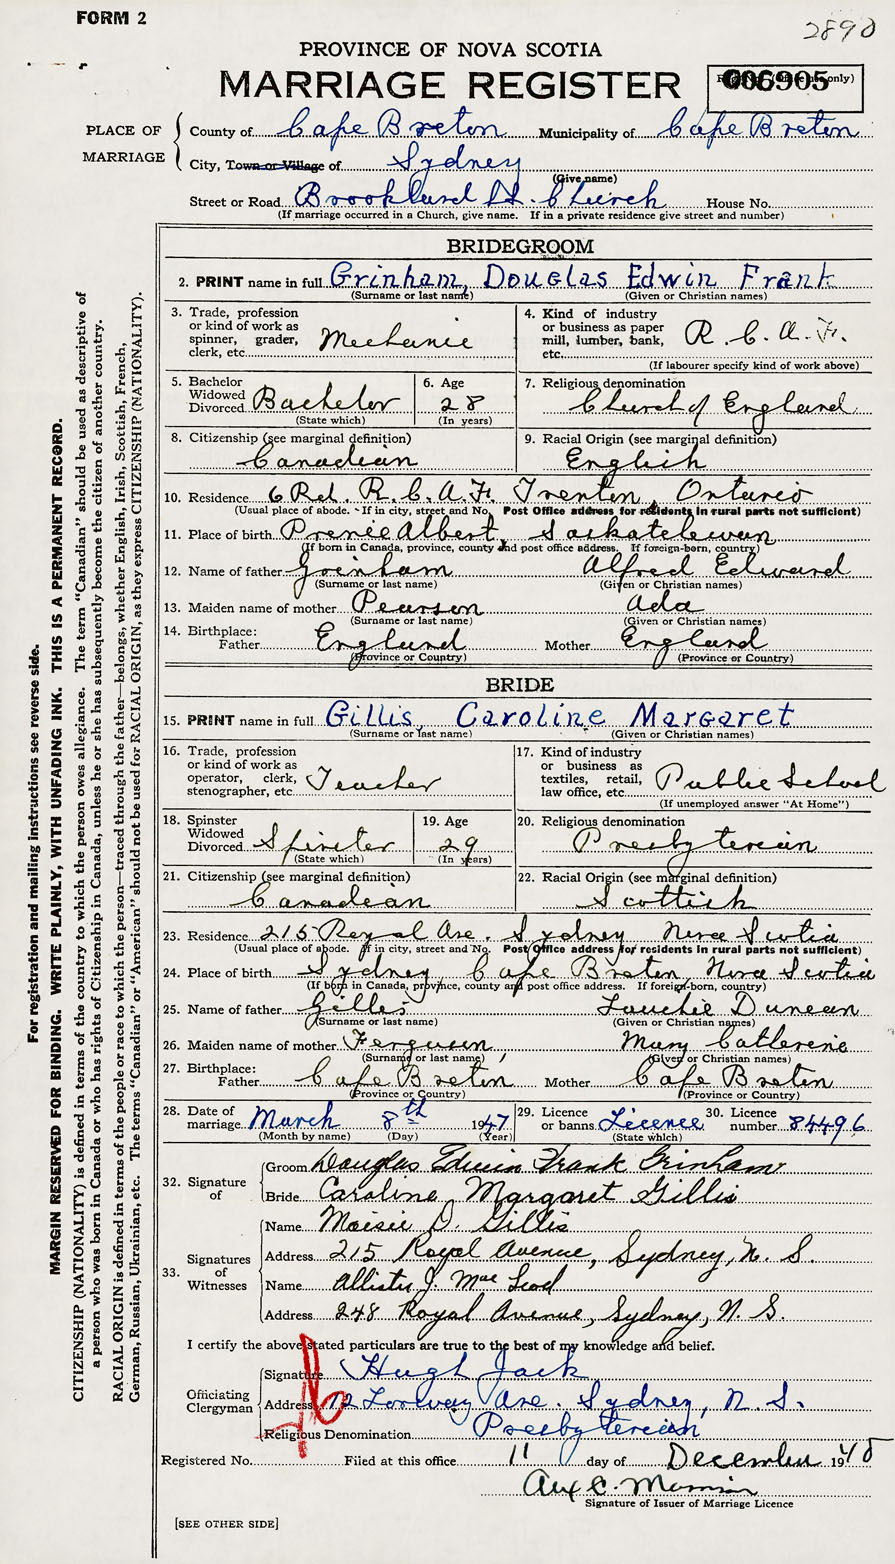 FORM 2
2890
PROVINCE OF NOVA SCOTIA
MARRIAGE REGISTER
006905
PLACE OF MARRIAGE
County of Cape Breton Municipality of Cape Breton
City, Town or Village of Sydney
(Give name)
Street or Road Brookland St. Church House No.
(If marriage occurred in a Church, give name. If in a private residence give street and number)
BRIDEGROOM
2. PRINT name in full Grinham, Douglas Edwin Frank
(Surname or last name) (Given or Christian names)
3. Trade, profession or kind of work as spinner, grader, clerk, etc. Mechanic
4. Kind of industry or business as paper mill, lumber, bank, etc. R.C.A.F.
(If labourer specify kind of work above)
5. Bachelor Widowed Divorced Bachelor
(State which)
6. Age 28
(In years)
7. Religious denomination Church of England
8. Citizenship (see marginal definition) Canadian
9. Racial Origin (see marginal definition) English
10. Residence 6 R.d. R.C.A.F. Trenton, Ontario
(Usual place of abode. If in city, street and No. Post Office address for residents in rural parts not sufficient)
11. Place of birth Prince Albert, Saskatchewan
(If born in Canada, province, county and post office address. If foreign-born, country)
12. Name of father Grinham Alfred Edward
(Surname or last name) (Given or Christian names)
13. Maiden name of mother Pearson Ada
(Surname or last name) (Given or Christian names)
14. Birthplace: Father England Mother England
(Province or Country) (Province or Country)
BRIDE
15. PRINT name in full Gillis, Caroline Margaret
(Surname or last name) (Given or Christian names)
16. Trade, profession or kind of work as operator, clerk, stenographer, etc. Teacher
17. Kind of industry or business as textiles, retail, law office, etc. Public School
(If unemployed answer "At Home")
18. Spinster Widowed Divorced Spinster
(State which)
19. Age 29
(In years)
20. Religious denomination Presbyterian
21. Citizenship (see marginal definition) Canadian
22. Racial Origin (see marginal definition) Scottish
23. Residence 215 Royal Ave. Sydney Nova Scotia
(Usual place of abode. If in city, street and No. Post Office address for residents in rural parts not sufficient)
24. Place of birth Sydney, Cape Breton, Nova Scotia
(If born in Canada, province, county and post office address. If foreign-born, country)
25. Name of father Gillis Lauchie Duncan
(Surname or last name) (Given or Christian names)
26. Maiden name of mother Ferguson, Mary Catherine
(Surname or last name) (Given or Christian names)
27. Birthplace: Father Cape Breton Mother Cape Breton
(Province or Country) (Province or Country)
28. Date of marriage March 8th 1947
(Month by name) (Day) (Year)
29. Licence or banns Licence
(State which)
30. Licence number 84496
32. Signature of
Groom Douglas Edwin Frank Grinham
Bride Caroline Margaret Gillis
33. Signatures of Witnesses
Name Maisie D. Gillis
Address 215 Royal Avenue, Sydney, N.S.
Name Allister J. MacLeod
Address 248 Royal Avenue, Sydney, N.S.
I certify the above stated particulars are true to the best of my knowledge and belief.
Officiating Clergyman
Signature Hugh Jack
Address 72 Ave. Sydney, N.S.
Religious Denomination Presbyterian
Registered No. Filed at this office 11 day of December 1948
Signature of Issuer of Marriage Licence
[SEE OTHER SIDE]
For registration and mailing instructions see reverse side.
MARGIN RESERVED FOR BINDING. WRITE PLAINLY, WITH UNFADING INK. THIS IS A PERMANENT RECORD.
CITIZENSHIP (NATIONALITY) is defined in terms of the country to which the person owes allegiance. The term "Canadian" should be used as descriptive of
a person who was born in Canada or who has rights of Citizenship in Canada, unless he or she has subsequently become the citizen of another country.
RACIAL ORIGIN is defined in terms of the people or race to which the person—traced through the father—belongs, whether English, Irish, Scottish, French,
German, Russian, Ukrainian, etc. The terms "Canadian" or "American" should not be used for RACIAL ORIGIN, as they express CITIZENSHIP (NATIONALITY).